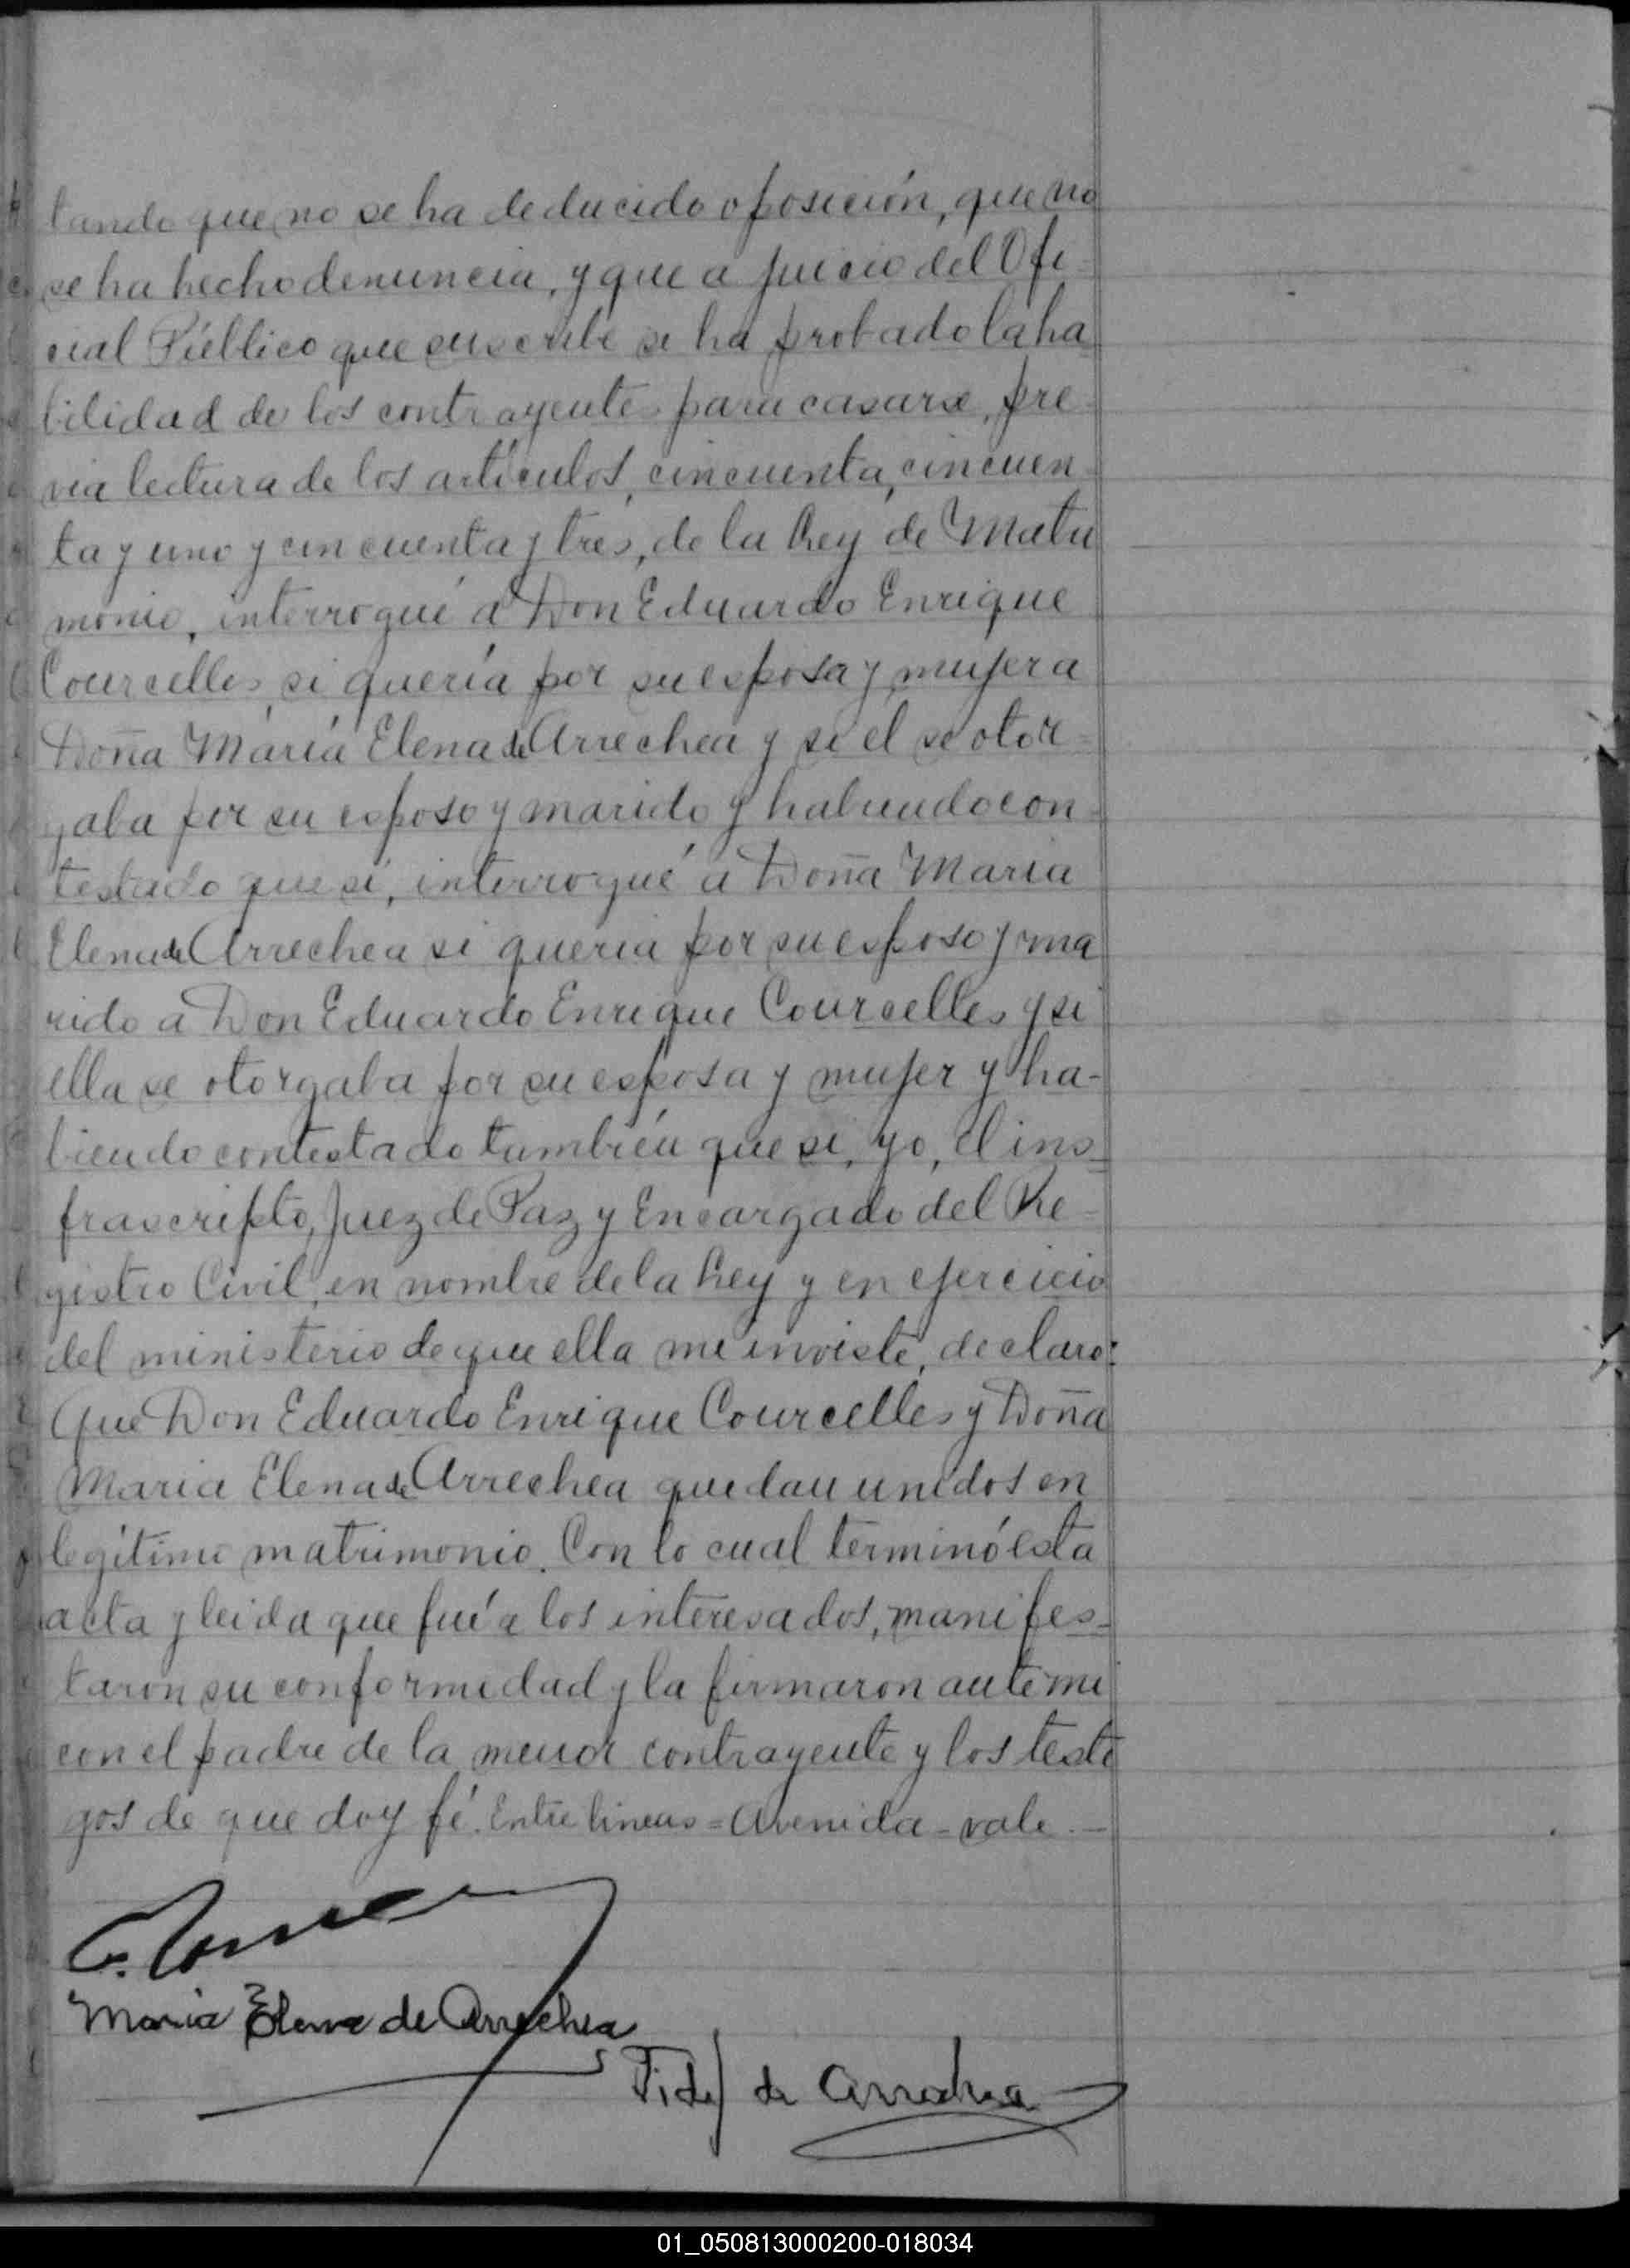 tando que no se ha deducido oposición, que no
se ha hecho denuncia, y que a juicio del Ofi-
cial Público que suscribe se ha probado la ha
bilidad de los contrayentes para casarse, pre-
via lectura de los artículos, cincuenta, cincuen-
ta y uno y cincuenta y tres, de la Ley de Matri
monio, interrogué á Don Eduardo Enrique
Courcelles, si quería por su esposa y mujer a
Doña María Elena de Arrechea y si el se otor-
gaba por su esposo y marido y habiendo con-
testado que sí, interrogué á Doña Maria
Elena de Arrechea si queria por su esposo y ma
rido a Don Eduardo Enrique Courcelles y si
ella se otorgaba por su esposa y mujer y ha-
biendo contestado también que si, yo, el ins-
frascripto, Juez de Paz y Encargado del Re-
gistro Civil, en nombre de la Ley y en ejercicio
del ministerio de que ella me inviste, declaro:
Que Don Eduardo Enrique Courcelles y Doña
Maria Elena de Arrechea quedan unidos en
legítimo matrimonio. Con lo cual terminó esta
acta y leida que fué a los interesados, manifes-
taron su conformidad y la firmaron ante mi
con el padre de la menor contrayente y los testi
gos de que doy fé. Entre lineas = Avenida - vale. -
Maria Elena de Arrechea
Fidel de Arrechea
01_050813000200-018034